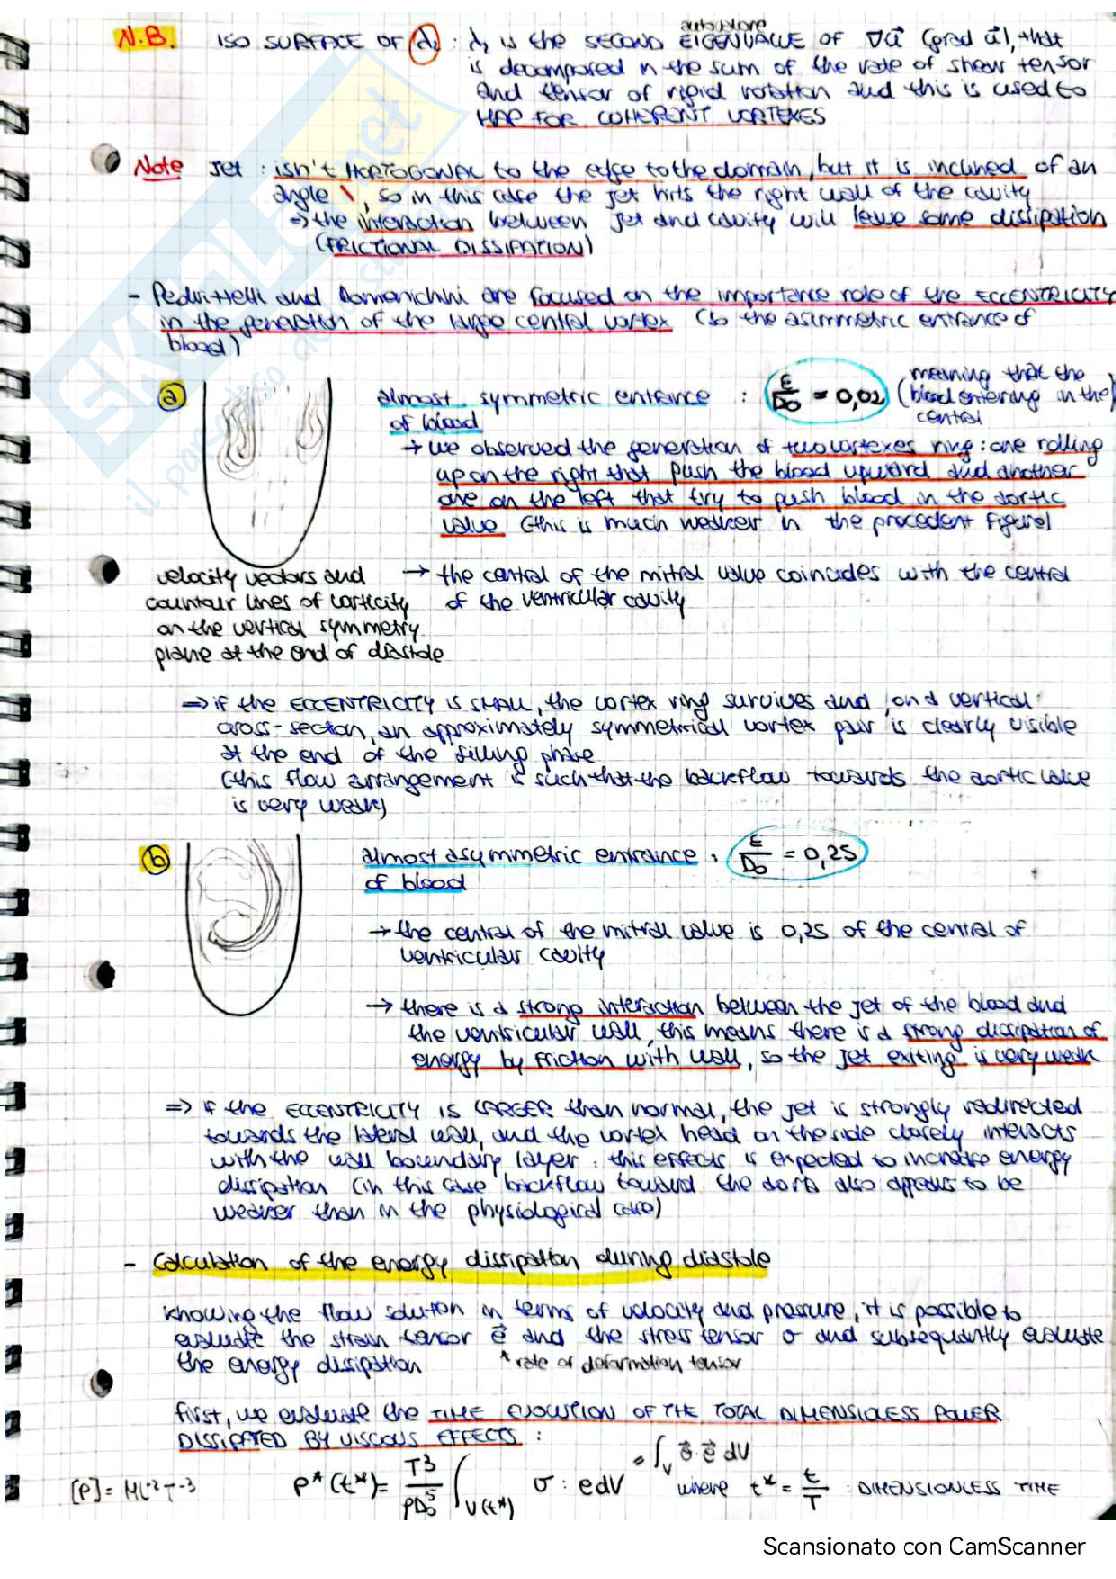 N.B. ISO SURFACE OF λ₂ : λ₂ is the SECOND EIGENVALUE OF ∇u⃗ (grad u⃗), that
autovalore
is decomposed in the sum of the rate of shear tensor
and tensor of rigid rotation and this is used to
MAP FOR COHERENT VORTEXES
Note Jet : isn't HORTOGONAL to the edge to the domain, but it is inclined of an
angle \, so in this case the jet hits the right wall of the cavity
⇒ the interaction between jet and cavity will leave some dissipation
(FRICTIONAL DISSIPATION)
- Pedrizzetti and Domenichini are focused on the importance role of the ECCENTRICITY
in the generation of the large central vortex (so the asimmetric entrance of
blood)
a almost symmetric entrance : E/D₀ = 0,02 (meaning that the
of blood blood entering in the
central)
→ we observed the generation of two vortexes ring : one rolling
up on the right that push the blood upward and another
one on the left that try to push blood in the aortic
valve (this is much weaker in the precedent figure)
velocity vectors and → the central of the mitral valve coincides with the central
countour lines of vorticity of the ventricular cavity
on the vertical symmetry
plane at the end of diastole
⇒ if the ECCENTRICITY is SMALL, the vortex ring survives and, on a vertical
cross-section, an approximately symmetrical vortex pair is clearly visible
at the end of the filling phase
(this flow arrangement is such that the backflow towards the aortic valve
is very weak)
b almost asymmetric entrance : E/D₀ = 0,25
of blood
→ the central of the mitral valve is 0,25 of the central of
ventricular cavity
→ there is a strong interaction between the jet of the blood and
the ventricular wall, this means there is a strong dissipation of
energy by friction with wall, so the jet exiting is very weak
⇒ if the ECCENTRICITY IS LARGER than normal, the jet is strongly redirected
towards the lateral wall, and the vortex head on the side closely interacts
with the wall boundary layer : this effects is expected to increase energy
dissipation (in this case backflow toward the aorta also appears to be
weaker than in the physiological case)
- Calculation of the energy dissipation during diastole
Knowing the flow solution in terms of velocity and pressure, it is possible to
evaluate the strain tensor e⃗ and the stress tensor σ and subsequently evaluate
the energy dissipation * rate of deformation tensor
first, we evaluate the TIME EVOLUTION OF THE TOTAL DIMENSIONLESS POWER
DISSIPATED BY VISCOUS EFFECTS :
∫_V σ⃗·e⃗ dV
[P] = ML²T⁻³ P*(t*) = T³/ρD₀⁵ ∫_V(t*) σ : e dV where t* = t/T : DIMENSIONLESS TIME
Scansionato con CamScanner